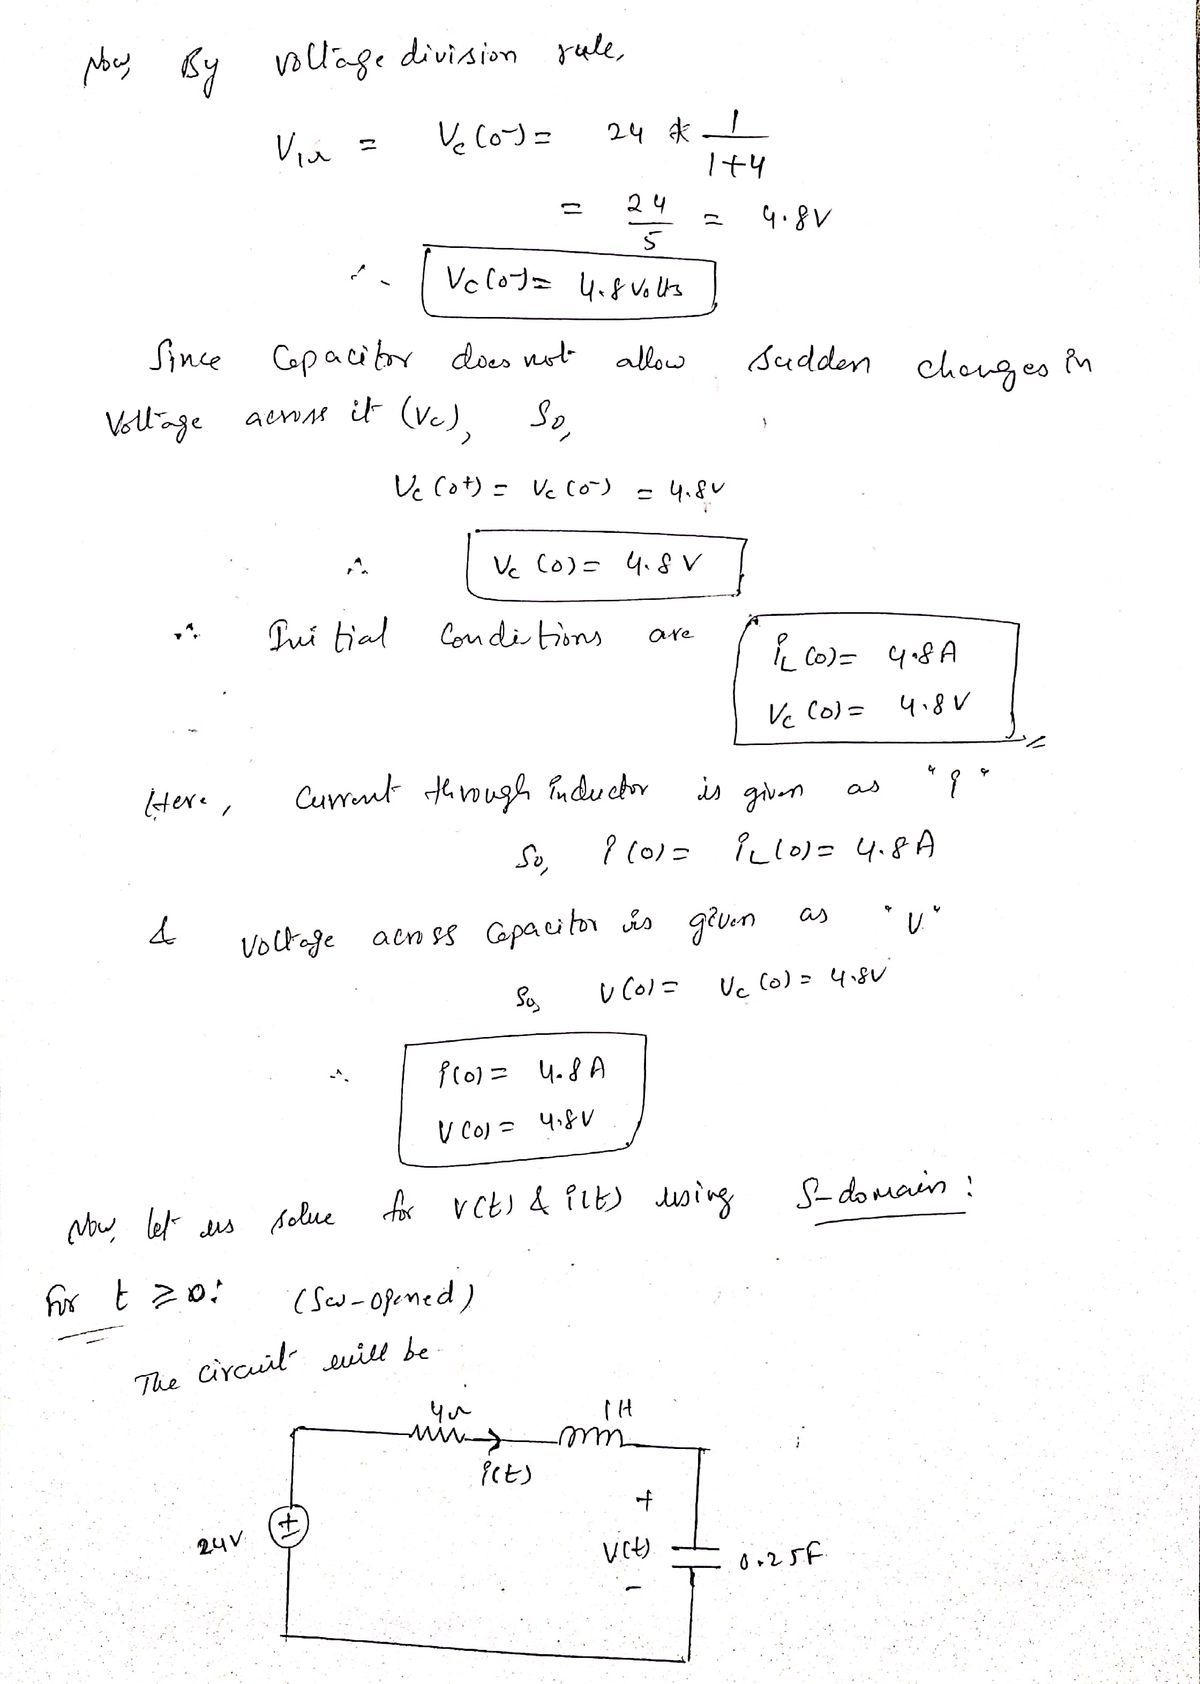 Now, By voltage division rule,
V1Ω = Vc(0-) = 24 * 1/(1+4)
= 24/5 = 4.8V
∴ Vc(0-) = 4.8 Volts
Since Capacitor does not allow sudden changes in
Voltage across it (Vc), So,
Vc(0+) = Vc(0-) = 4.8V
∴ Vc(0) = 4.8 V
∴ Initial Conditions are
iL(0) = 4.8A
Vc(0) = 4.8V
Here, Current through inductor is given as "i"
So, i(0) = iL(0) = 4.8A
& Voltage across Capacitor is given as "V"
So, V(0) = Vc(0) = 4.8V
∴ i(0) = 4.8A
V(0) = 4.8V
Now, let us solve for v(t) & i(t) using S-domain:
For t ≥ 0: (Sw-opened)
The circuit will be
4Ω 1H
i(t)
24V + V(t) - 0.25F